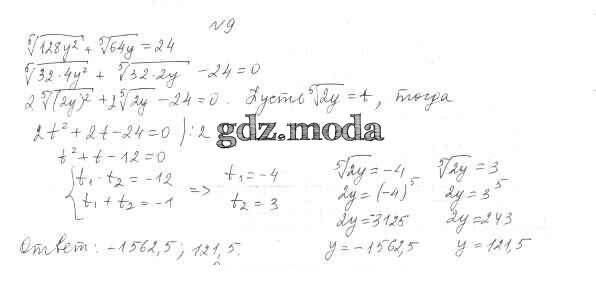 №9
⁵√128y² + ⁵√64y = 24
⁵√32·4y² + ⁵√32·2y - 24 = 0
2⁵√(2y)² + 2⁵√2y - 24 = 0. Пусть ⁵√2y = t, тогда
2t² + 2t - 24 = 0 ) : 2
gdz.moda
t² + t - 12 = 0
{ t₁ · t₂ = -12
t₁ + t₂ = -1
=> t₁ = -4
t₂ = 3
⁵√2y = -4
2y = (-4)⁵
2y = -3125
y = -1562,5
⁵√2y = 3
2y = 3⁵
2y = 243
y = 121,5
Ответ: -1562,5; 121,5.